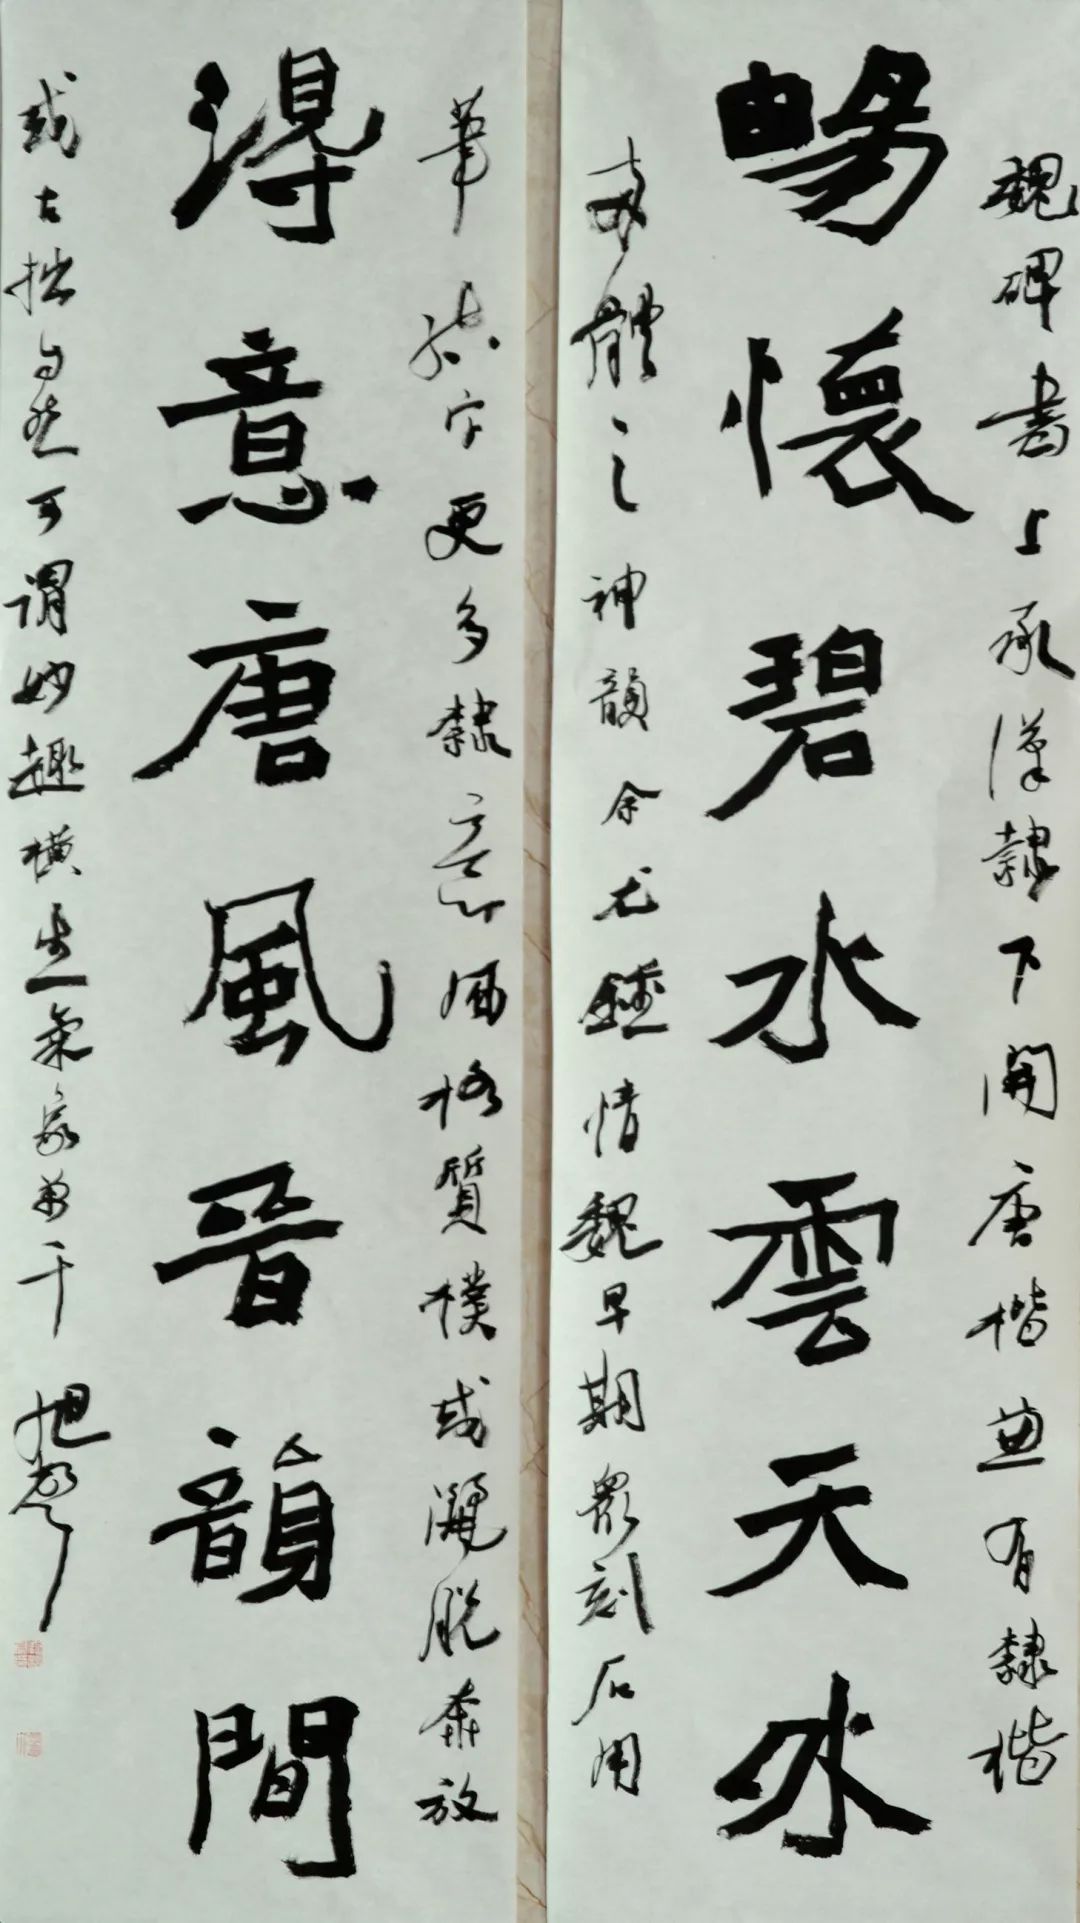 魏碑書上承漢隸下開唐楷兼有隸楷
暢懷碧水雲天外
兩體之神韻余尤鍾情魏早期眾刻石用
筆結字更多隸意風格質樸或灑脫奔放
得意唐風晉韻間
或古拙自然可謂妙趣橫生氣象萬千